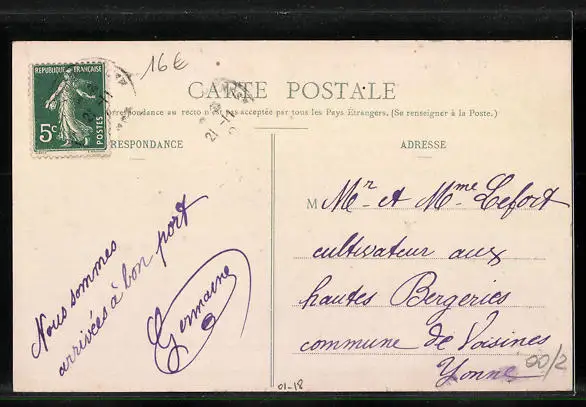 16€
REPUBLIQUE FRANÇAISE
5c
POSTES
CARTE POSTALE
orrespondance au recto n'est pas acceptée par tous les Pays Etrangers. (Se renseigner à la Poste.)
RESPONDANCE
ADRESSE
Nous sommes
arrivées à bon port
Germaine
M Mr et Mme Lefort
cultivateur aux
hautes Bergeries
commune de Voisines
Yonne
00/2
01-18
21 -11